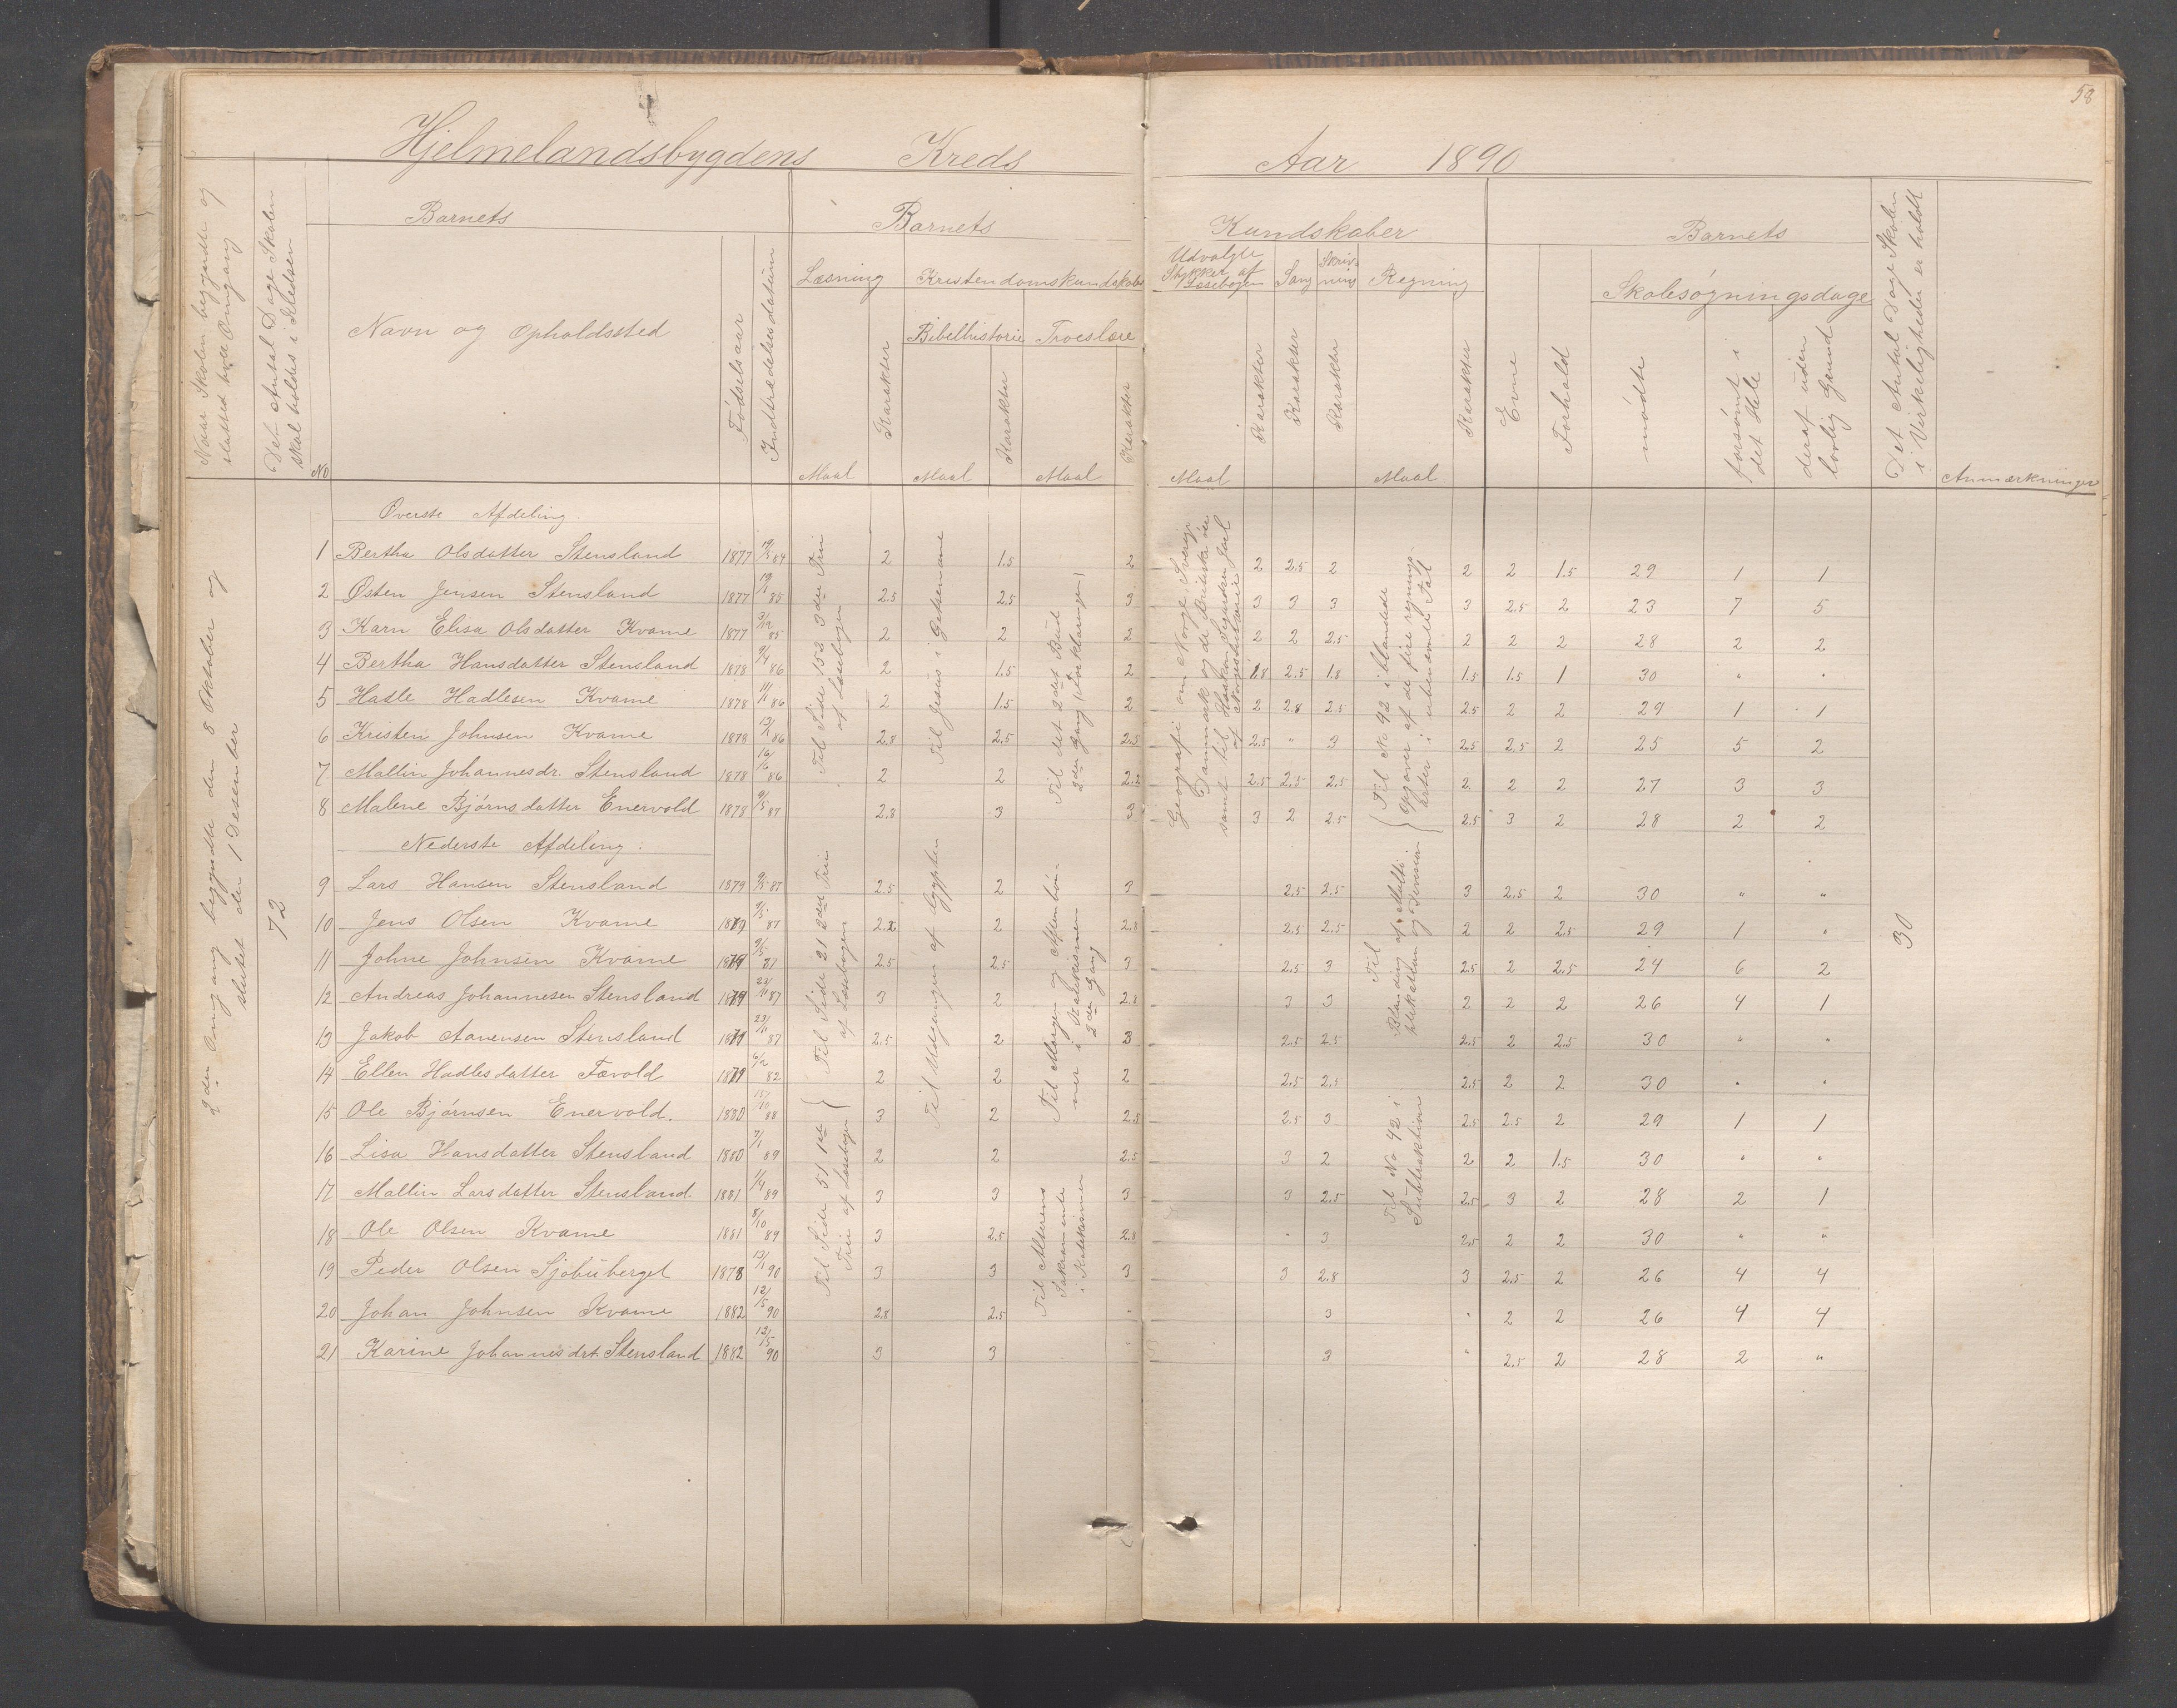 58
Hjelmelandsbygdens Kreds Aar 1890
Naar Skolen begyndte og
slutted hver Omgang
Det Antal Dage Skolen
skal holdes i Kredsen
No
Barnets
Navn og Opholdssted
Fødselsaar
Indtrædelsesdatum
Barnets
Læsning
Maal
Karakter
Kristendomskundskaber
Bibelhistorie
Maal
Karakter
Troeslære
Maal
Karakter
Kundskaber
Udvalgte
Stykker af
Læsebogen
Maal
Karakter
Sang
Karakter
Skriv-
ning
Karakter
Regning
Maal
Karakter
Barnets
Evne
Forhold
Skolesøgningsdage
mødte
forsømt i
det Hele
deraf uden
lovlig Grund
Det Antal Dage Skolen
i Virkeligheden er holdt
Anmærkninger
2den Omgang begyndte den 8 Oktober og
sluttet den 1 Desember
72
30
Øverste Afdeling
1 Bertha Olsdatter Stensland 1877 19/5 84 2 1.5 2 2 2.5 2 2 2 1.5 29 1 1
2 Østen Jensen Stensland 1877 19/1 85 2.5 2.5 3 3 3 3 3 2.5 2 23 7 5
3 Karn Elisa Olsdatter Kvame 1877 3/12 85 2 2 2 2 2 2.5 2 2 2 28 2 2
4 Bertha Hansdatter Stensland 1878 9/4 86 2 1.5 2 1.8 2.5 1.8 1.5 1.5 1 30 " "
5 Hadle Hadlesen Kvame 1878 11/1 86 2 1.5 2 2 2.8 2.5 2.5 2 2 29 1 1
6 Kristen Johnsen Kvame 1878 13/1 86 2.8 2.5 2.5 2.5 " 3 2.5 2.5 2 25 5 2
7 Mallin Johannesdr. Stensland 1878 16/6 86 2 2 2.2 2.5 2.5 2.5 2 2 2 27 3 3
8 Malene Bjørnsdatter Enervold 1878 9/5 87 2.8 3 3 3 2 2.5 2.5 3 2 28 2 2
Nederste Afdeling.
9 Lars Hansen Stensland 1879 9/5 87 2.5 2 3 2.5 2.5 3 2.5 2 30 " "
10 Jens Olsen Kvame 1879 9/5 87 2.2 2 2.8 2.5 2.5 2 2 2.5 29 1 "
11 Johne Johnsen Kvame 1879 9/5 87 2.5 2.5 3 2.5 3 2.5 2 2.5 24 6 2
12 Andreas Johannesen Stensland 1879 23/11 87 3 2 2.8 3 3 2 2 2 26 4 1
13 Jakob Aanensen Stensland 1879 23/11 87 2.5 2 3 2.5 2.5 2.5 2 2.5 30 " "
14 Ellen Hadlesdatter Fævold 1879 6/2 82 2 2 2 2.5 2.5 2.5 2 2 30 " "
15 Ole Bjørnsen Enervold. 1880 88 3 2 2.5 2.5 3 2.5 2.5 2 29 1 1
16 Lisa Hansdatter Stensland 1880 7/1 89 2 2 2.5 3 2 2 2 1.5 30 " "
17 Mallin Larsdatter Stensland 1881 1/4 89 3 3 3 3 2.5 2.5 3 2 28 2 1
18 Ole Olsen Kvame 1881 8/10 89 3 2.5 2.8 " 3 2.5 2 2 30 " "
19 Peder Olsen Sjøbuberget 1878 13/1 90 3 3 3 3 2.8 3 2.5 2 26 4 4
20 Johan Johnsen Kvame 1882 12/5 90 2.8 2.5 " 3 " 2 2 26 4 4
21 Karine Johannesdrt. Stensland 1882 12/5 90 3 3 3 " 2.5 2 28 2 "
Til Side 152 3die Trin
af Læsebogen
Til Side 21 2det Trin
af Læsebogen
Til Side 51 1ste
Trin af Læsebogen
Til Jesus i Getsemane
Til Udgangen af Egypten
Til det 2det Bud
2den Gang (Forklaringen)
Til Morgen og Aftenbøn-
ner i Katekismen
2den Gang
Til Alterens
Sakramente
i Katekismen
Geografi om Norge, Sverige
Danmark og de Britiske øer
samt til Haakon Sigurdsen Jarl
af Norgeshistorie
Til No 92 i blandede
Opgaver af de fire regnings
arter i ubenævnte Tal
Til
Blanding af Multi-
plikation og Division
Til No 42 i
Subtraktion